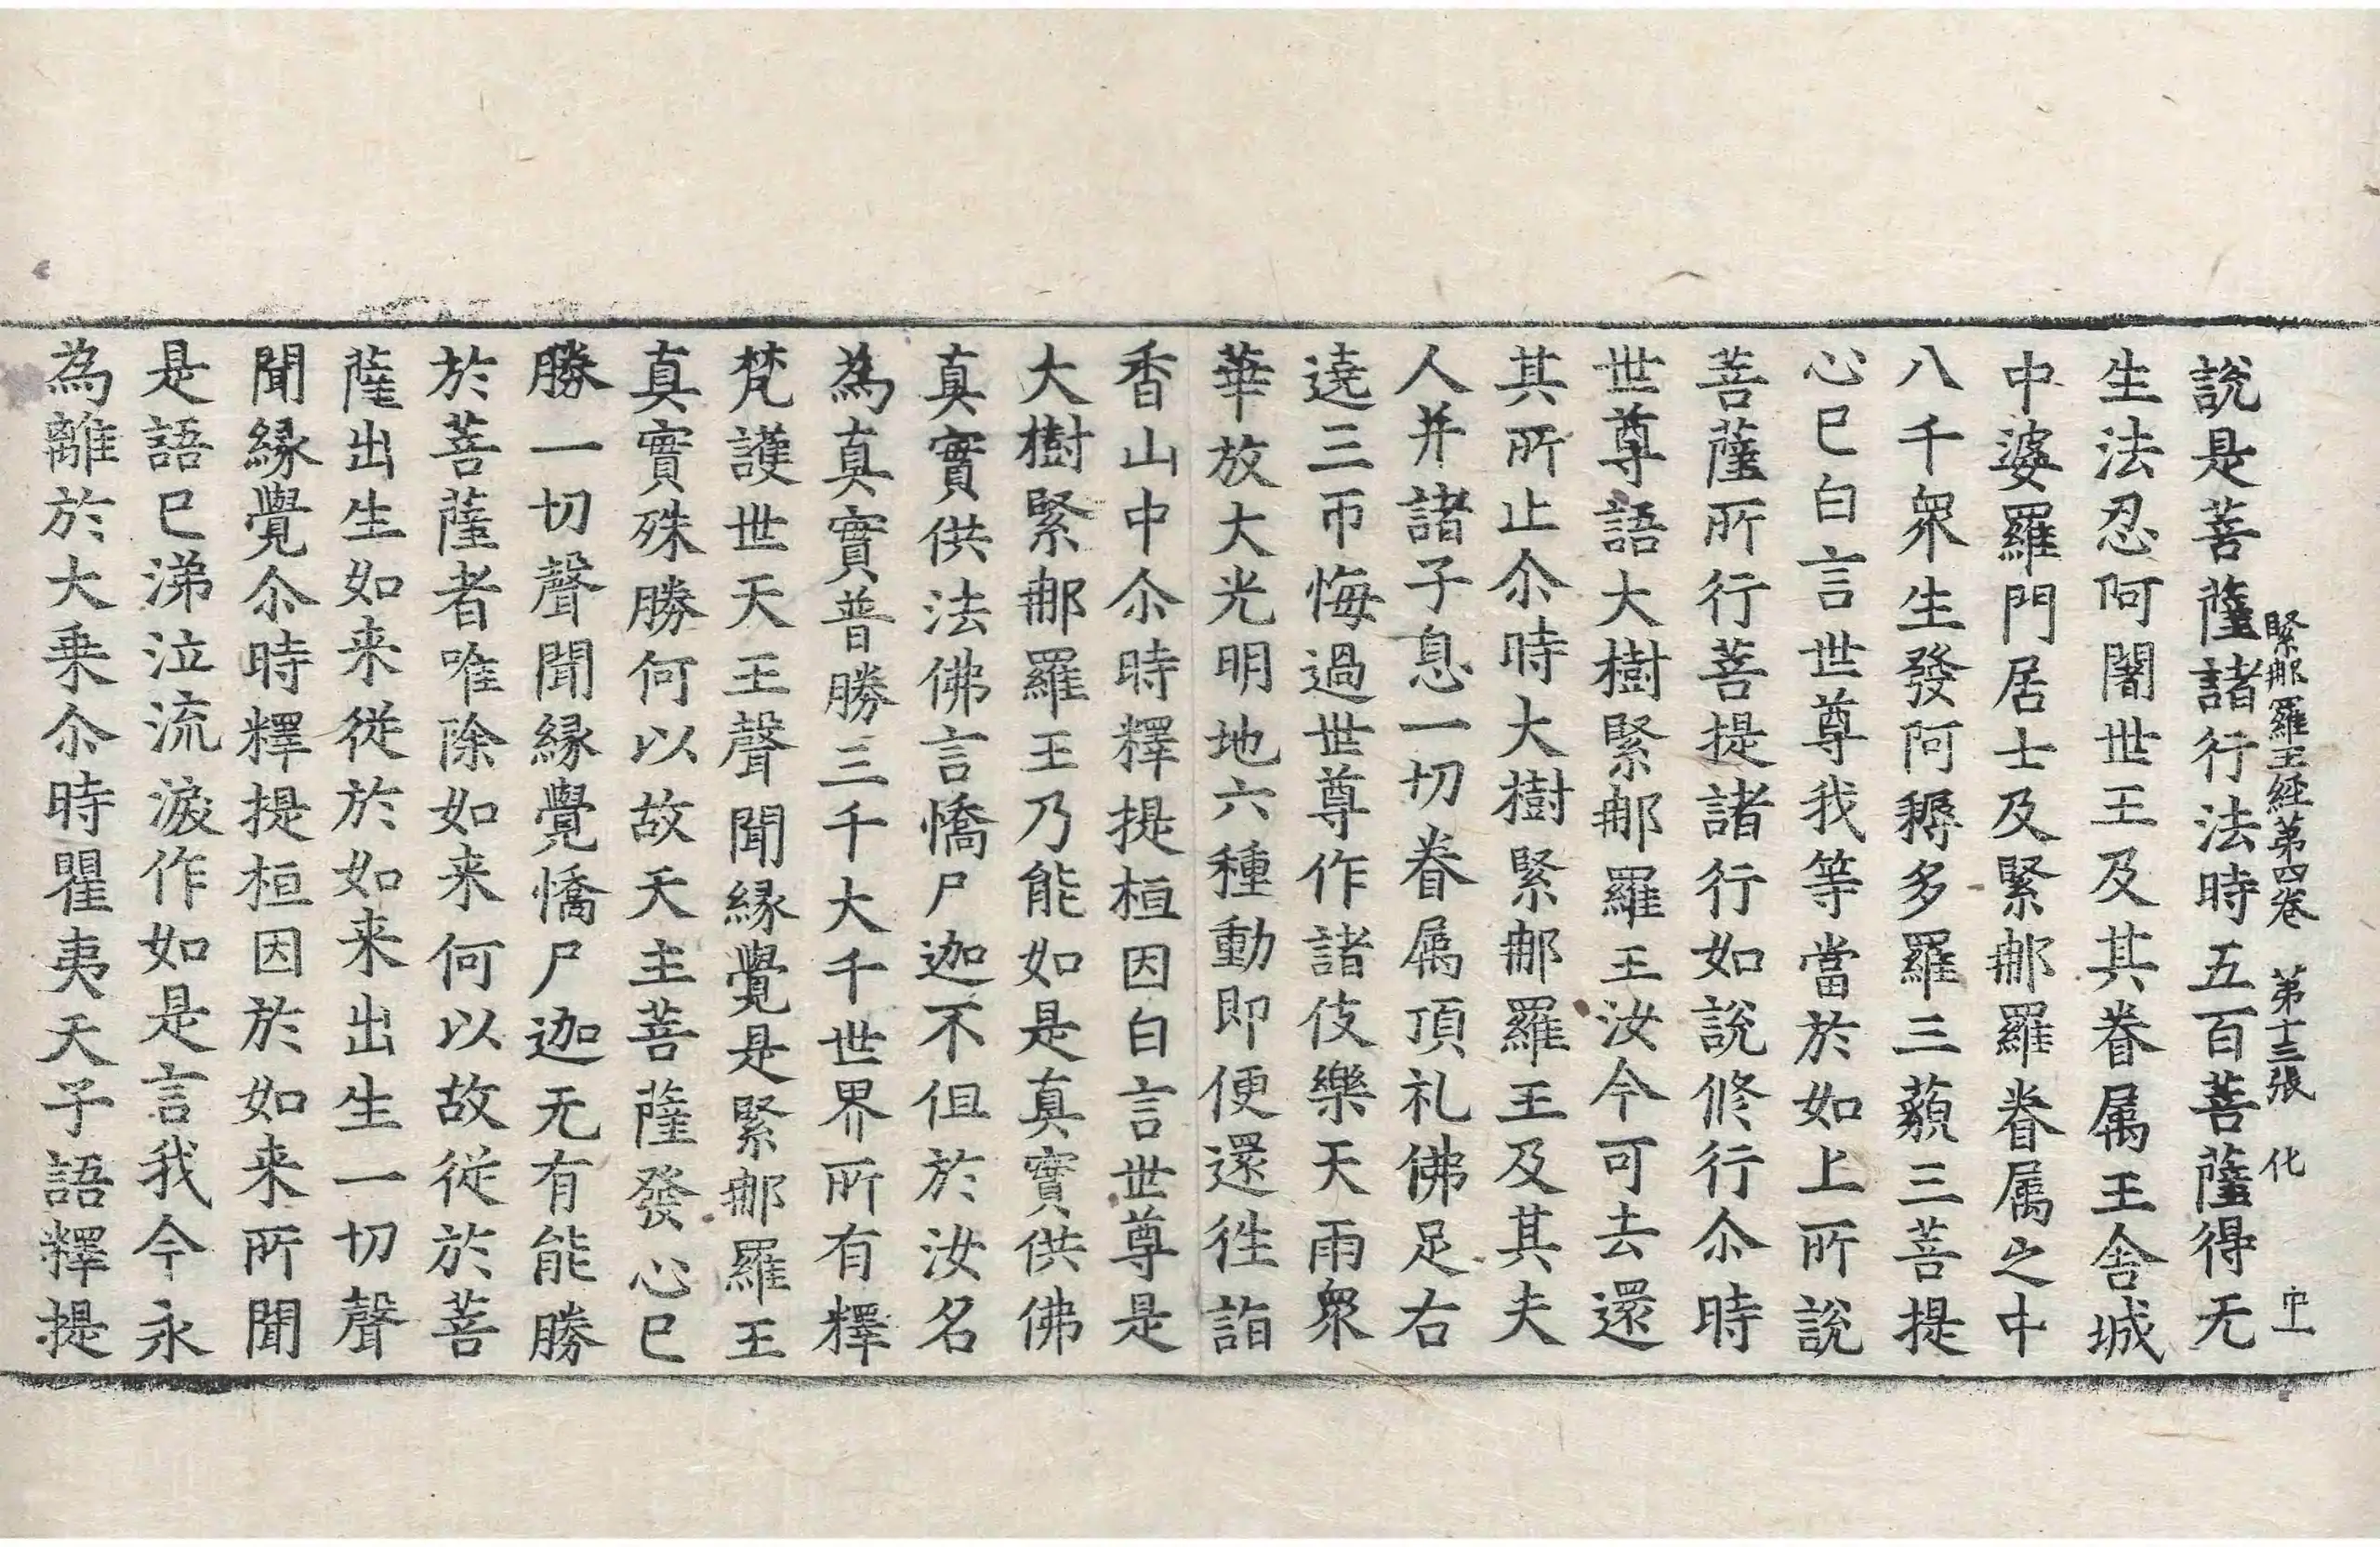 緊那羅王経第四卷 第十三張 化
說是菩薩諸行法時五百菩薩得无
生法忍阿闍世王及其眷属王舍城
中婆羅門居士及緊那羅眷属之中
八千衆生發阿耨多羅三藐三菩提
心已白言世尊我等當於如上所說
菩薩所行菩提諸行如說修行尒時
世尊語大樹緊那羅王汝今可去還
其所止尒時大樹緊那羅王及其夫
人并諸子息一切眷属頂礼佛足右
遶三帀悔過世尊作諸伎樂天雨衆
華放大光明地六種動即便還徃詣
香山中尒時釋提桓因白言世尊是
大樹緊那羅王乃能如是真實供佛
真實供法佛言憍尸迦不但於汝名
為真實普勝三千大千世界所有釋
梵護世天王聲聞緣覺是緊那羅王
真實殊勝何以故天主菩薩發心已
勝一切聲聞緣覺憍尸迦无有能勝
於菩薩者唯除如来何以故従於菩
薩出生如来従於如来出生一切聲
聞緣覺尒時釋提桓因於如来所聞
是語已涕泣流淚作如是言我今永
為離於大乗尒時瞿夷天子語釋提